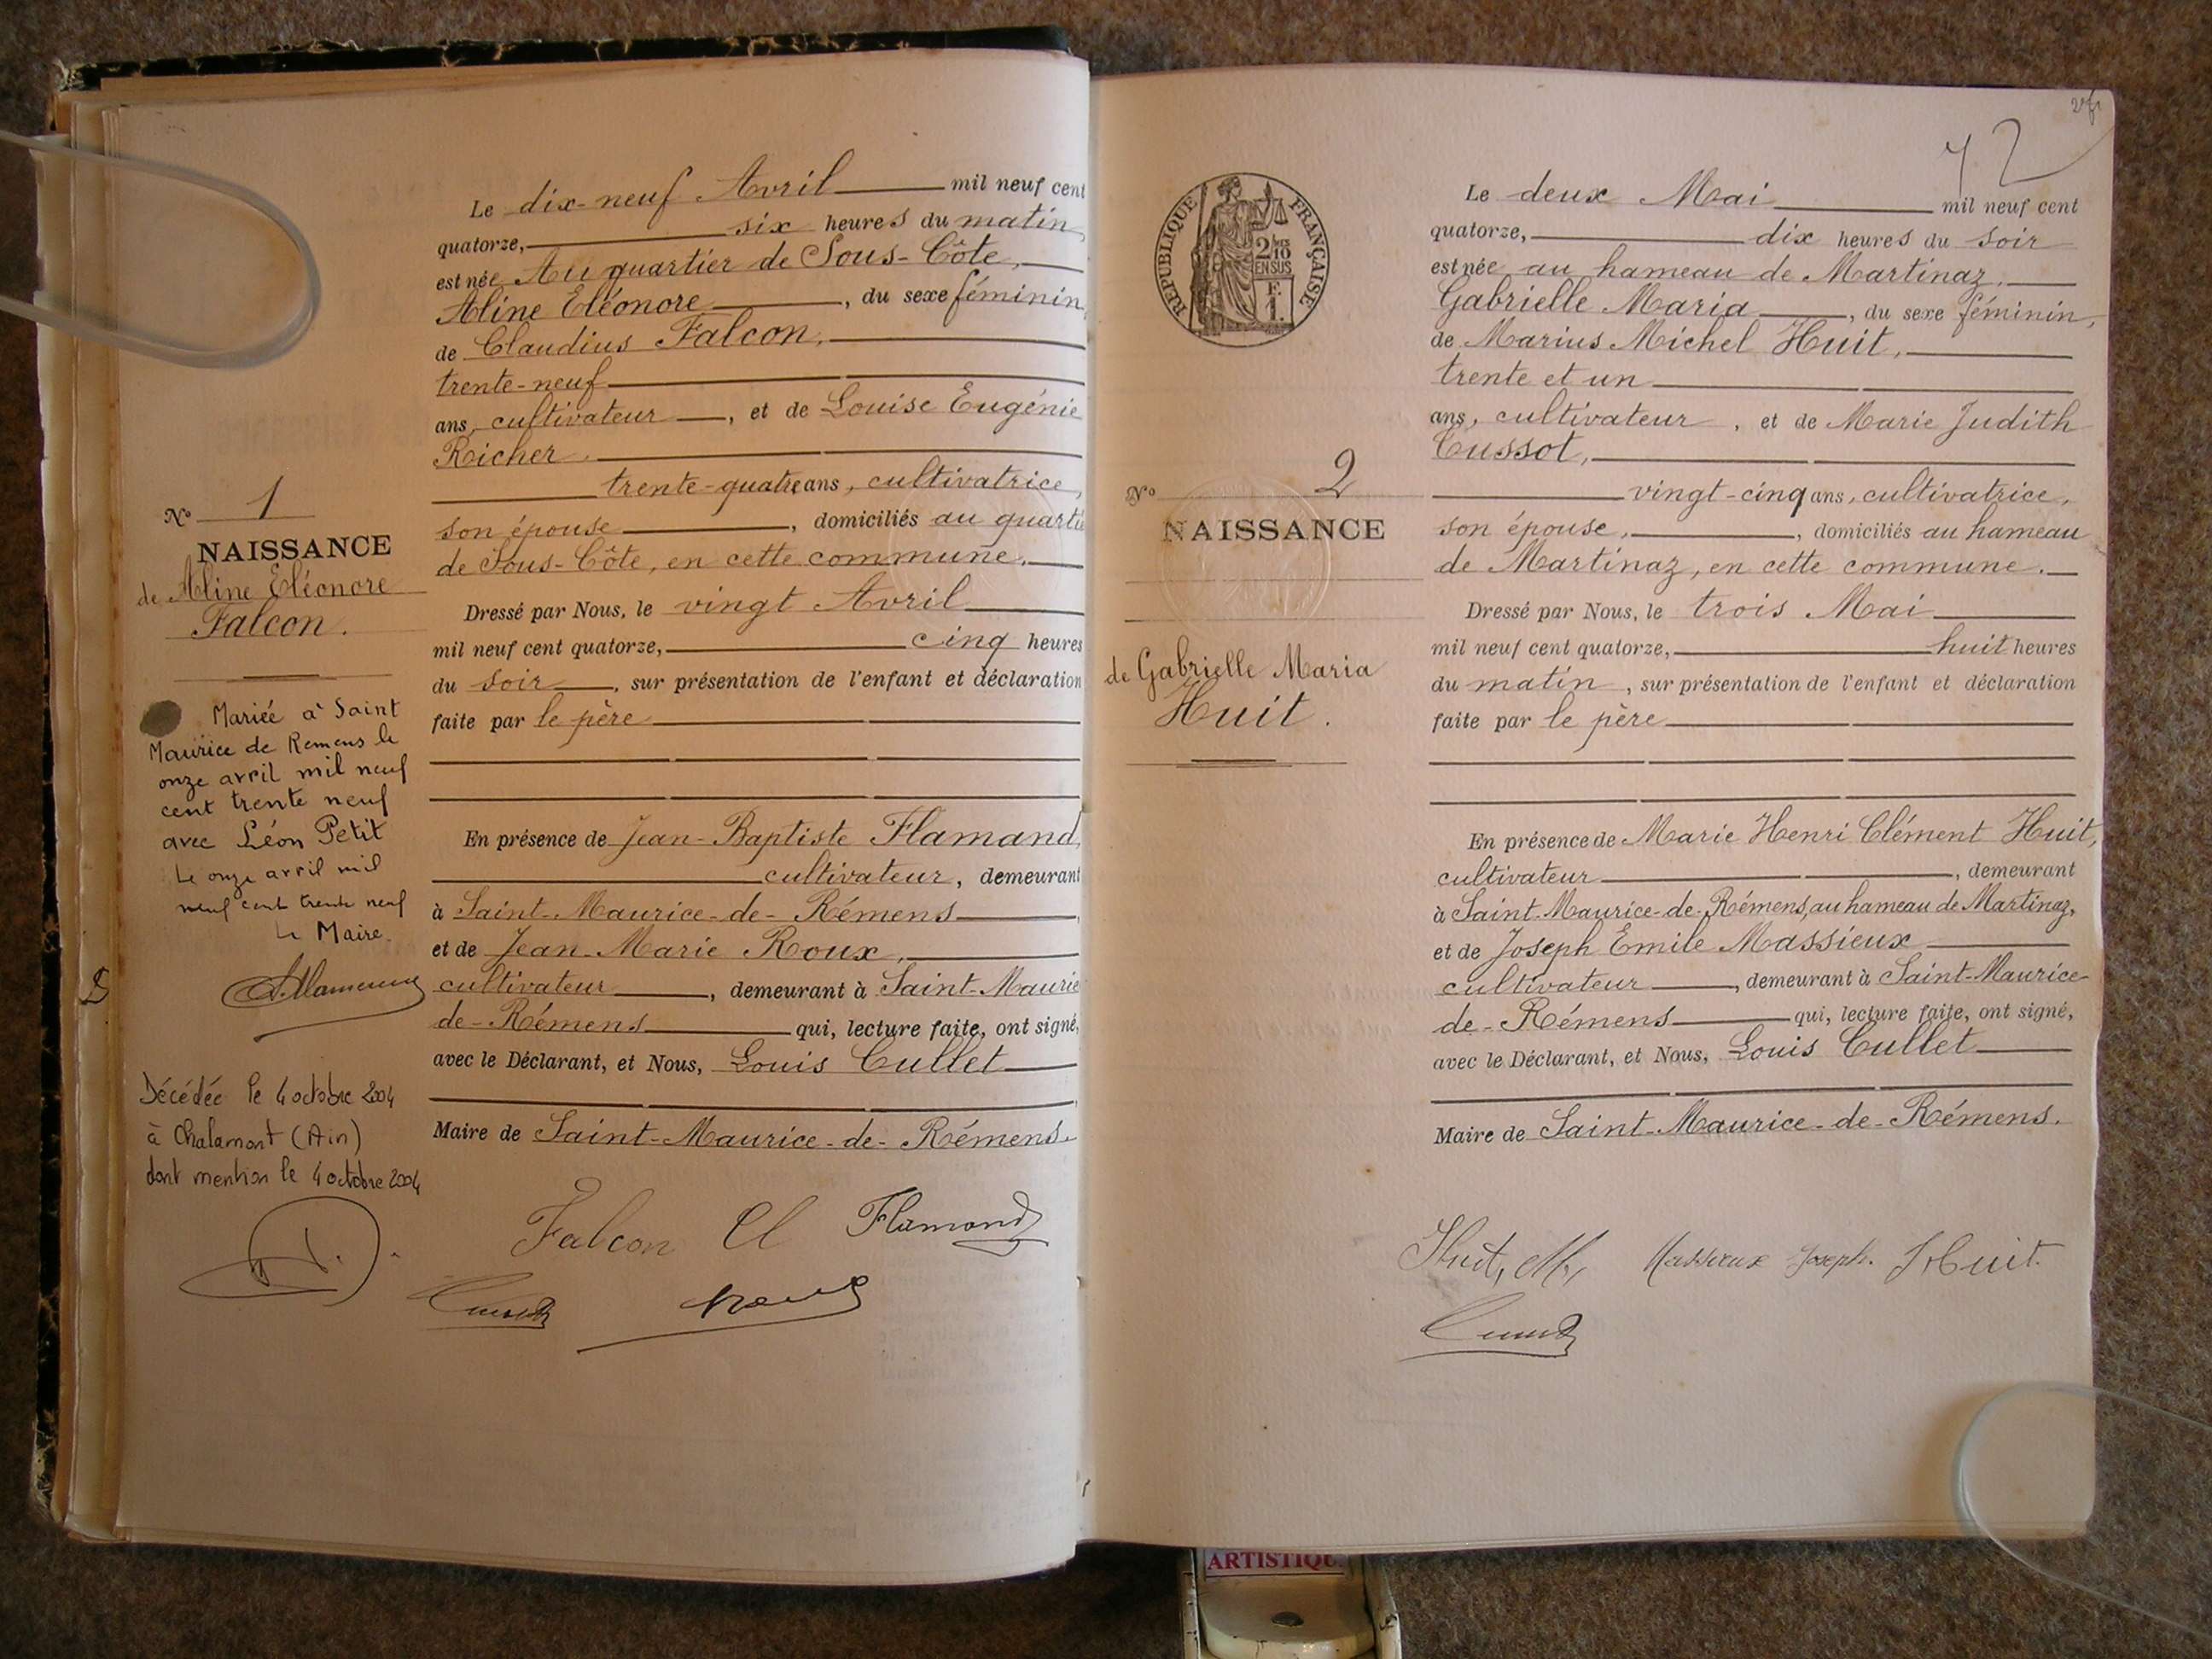 Le dix-neuf Avril mil neuf cent
quatorze, six heures du matin,
est née Au quartier de Sous-Côte,
Aline Eléonore, du sexe féminin,
de Claudius Falcon,
trente-neuf
ans, cultivateur, et de Louise Eugénie
Richer
trente-quatre ans, cultivatrice,
son épouse, domiciliés au quartie
de Sous-Côte, en cette commune.
Dressé par Nous, le vingt Avril
mil neuf cent quatorze, cinq heures
du soir, sur présentation de l'enfant et déclaration
faite par le père
En présence de Jean-Baptiste Flamand,
cultivateur, demeurant
à Saint-Maurice-de-Rémens,
et de Jean-Marie Roux,
cultivateur, demeurant à Saint-Maurice
de-Rémens qui, lecture faite, ont signé,
avec le Déclarant, et Nous, Louis Cullet
Maire de Saint-Maurice-de-Rémens.
Falcon Cl Flamand
N° 1
NAISSANCE
de Aline Eléonore
Falcon.
Mariée à Saint
Maurice de Remens le
onze avril mil neuf
cent trente neuf
avec Léon Petit
Le onze avril mil
neuf cent trente neuf
Le Maire.
Décédée le 4 octobre 2004
à Chalamont (Ain)
dont mention le 4 octobre 2004
72
REPUBLIQUE FRANÇAISE
2/10
EN SUS
F.
1.
N° 2
NAISSANCE
de Gabrielle Maria
Huit.
Le deux Mai mil neuf cent
quatorze, dix heures du soir
est née au hameau de Martinaz,
Gabrielle Maria, du sexe féminin,
de Marius Michel Huit,
trente et un
ans, cultivateur, et de Marie Judith
Cussot,
vingt-cinq ans, cultivatrice,
son épouse, domiciliés au hameau
de Martinaz, en cette commune.
Dressé par Nous, le trois Mai
mil neuf cent quatorze, huit heures
du matin, sur présentation de l'enfant et déclaration
faite par le père
En présence de Marie Henri Clément Huit,
cultivateur, demeurant
à Saint-Maurice-de-Rémens, au hameau de Martinaz,
et de Joseph Emile Massieux
cultivateur, demeurant à Saint-Maurice-
de-Rémens qui, lecture faite, ont signé,
avec le Déclarant, et Nous, Louis Cullet
Maire de Saint-Maurice-de-Rémens.
Huit, M, Massieux Joseph. Huit.
ARTISTIQU